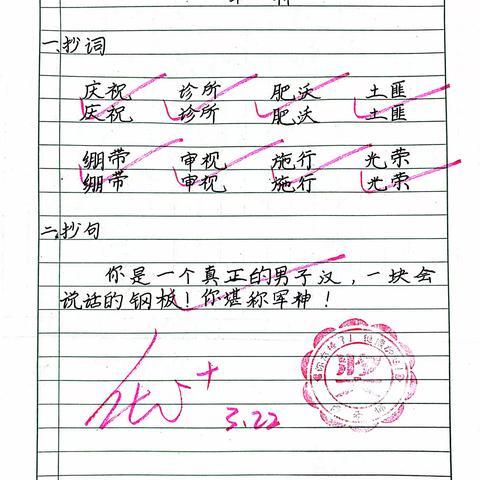 一、抄词
庆祝 诊所 肥沃 土匪
庆祝 诊所 肥沃 土匪
绷带 审视 施行 光荣
绷带 审视 施行 光荣
二、抄句
你是一个真正的男子汉，一块会
说话的钢板！你堪称军神！
优+
3.22